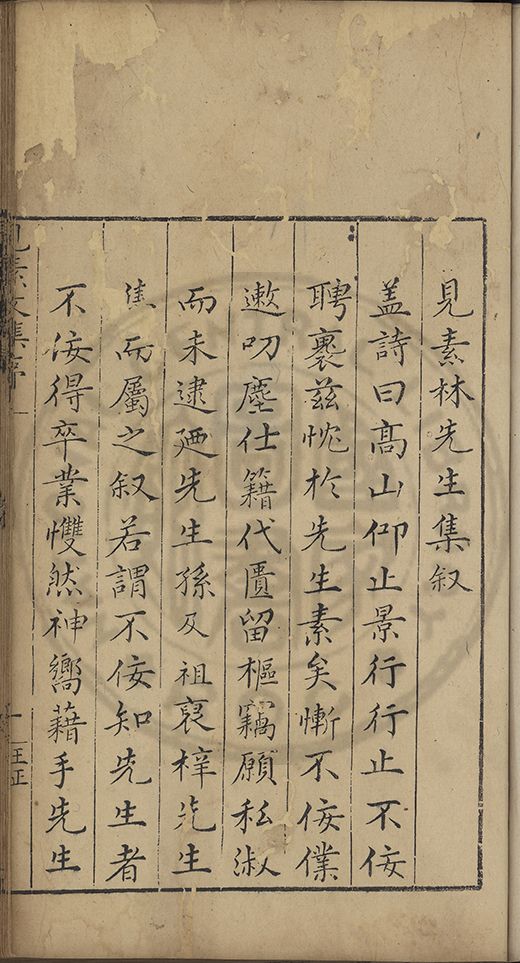 見素林先生集叙
盖詩曰高山仰止景行行止不佞
聘裏兹忱於先生素矣慚不佞僕
遬叨塵仕籍代匱留樞竊願私淑
而未逮廼先生孫及祖裒梓先生
集而屬之叙若謂不佞知先生者
不佞得卒業戄然神嚮藉手先生
見素文集序
一
王正